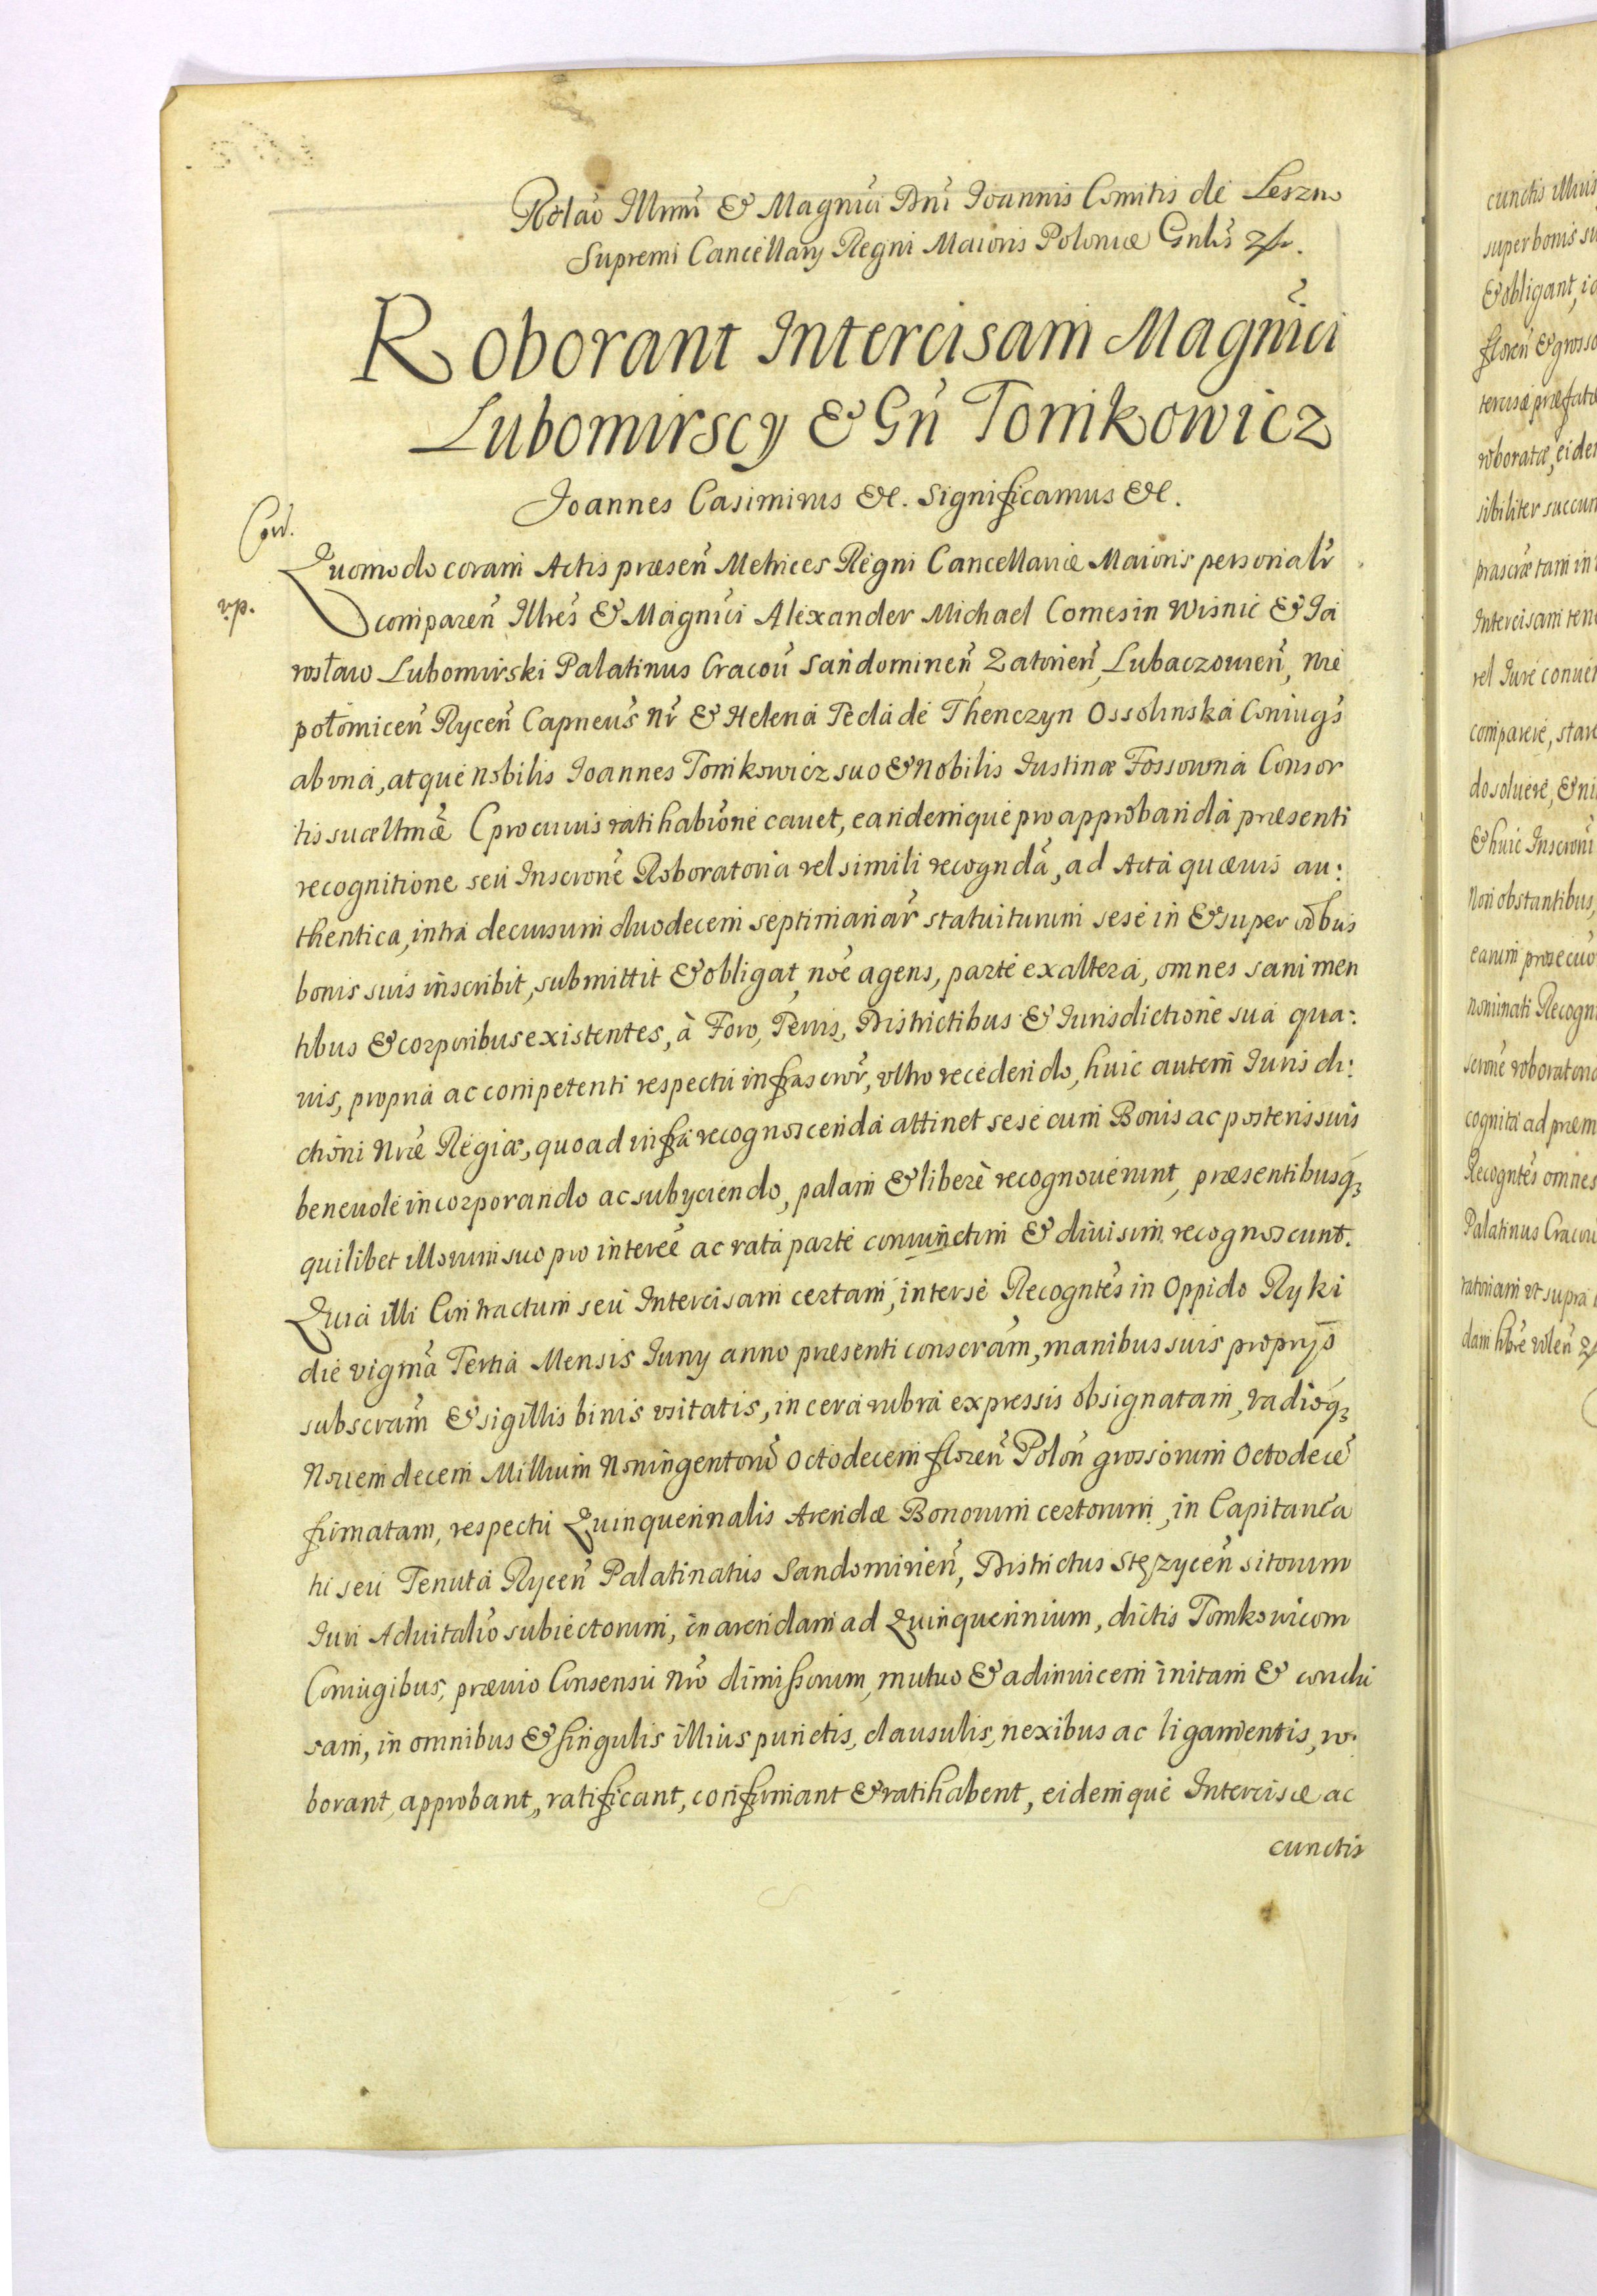 Relao Illmi & Magnici Dni Ioannis Comitis de Leszno
Supremi Cancellarij Regni Maioris Poloniæ Gnlis
Roborant Intercisam Magnici
Lubomirscy & Gn Tomkowicz
Ioannes Casimirus &c. Significamus &c.
Quomodo coram Actis præsen Metrices Regni Cancellariæ Maioris personalr
comparen Illres & Magnici Alexander Michael Comes in Wisnic & Ia
rosław Lubomirski Palatinus Cracou Sandomirien, Zatorien, Lubaczouien, Nie
połomicen Rycen Capneus nr & Helena Tecla de Thenczyn Ossolinska Coniugs
ab vna, atque nobilis Ioannes Tomkowicz suo & Nobilis Iustinæ Fossowna Consor
tis suæ Ltmæ (pro cuius ratihabione cauet, eandemque pro approbanda præsenti
recognitione seu Inscrone Roboratoria vel simili recognda, ad Acta quæuis au:
thentica, intra decursum duodecem septimanar statuiturum sese in & super oibus
bonis suis inscribit, submittit & obligat, noe agens, parte ex altera, omnes sani men
tibus & corporibus existentes, à Foro, Terris, Districtibus & Iurisdictione sua qua:
uis, propria ac competenti respectu infrascror, vltro recedendo, huic autem Iurisdi:
ctioni Nræ Regiæ, quoad infra recognoscenda attinet sese cum Bonis ac posteris suis
beneuole incorporando ac subijciendo, palam & libere recognouerunt, præsentibusq3
quilibet illorum suo pro interee ac rata parte coniunctim & diuisim recognoscunt.
Quia illi Contractum seu Intercisam certam, inter se Recogntes in Oppido Ryki
die vigma Tertia Mensis Iunij anno præsenti conscram, manibus suis proprijs
subscram & sigillis binis vsitatis, in cera rubra expressis obsignatam, vadioq3
Nouemdecem Millium Noningentoru Octodecem floren Polon grossorum Octodece
firmatam, respectu Quinquennalis Arendæ Bonorum certorum, in Capitanea
tu seu Tenuta Rycen Palatinatus Sandomirien, Districtus Stęzycen sitorum
Iuri Aduitalio subiectorum, in arendam ad Quinquennium, dictis Tomkowicom
Coniugibus, præuio Consensu Nro dimissorum, mutuo & adinuicem initam & conclu
sam, in omnibus & singulis illius punctis, clausulis, nexibus ac ligamentis, ro
borant, approbant, ratificant, confirmant & ratihabent, eidemque Intercisæ ac
cunctis
Cord.
vp.
cunctis illius
super bonis su
& obligant, id
floren & grosso
tercisæ præfatæ
roboratæ, eidem
sibiliter succum
Intercisam ten
vel Iure conuen
comparere, stare
do soluere, & ni
& huic Inscroni
Non obstantibus,
nominati Recogn
scrone roboratoria
cognita ad præm
Recogntes omnes
Palatinus Cracou
ratoriam vt supra